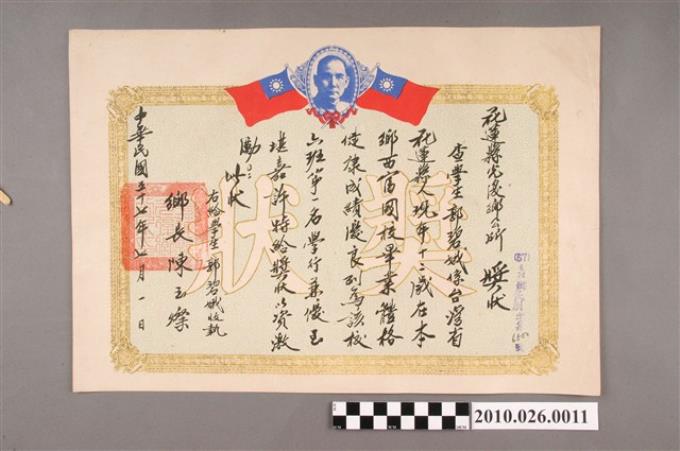 花蓮縣光復鄉公所 獎狀
查學生郭碧娥係台灣省
花蓮縣人現年十三歲在本
鄉西富國校畢業體格
健康成績優良列為該校
六班第一名學行兼優至
堪嘉許特給獎狀以資激
勵
此狀
右給學生郭碧娥收執
鄉長陳玉燦
中華民國五十七年七月一日
獎狀
2010.026.0011